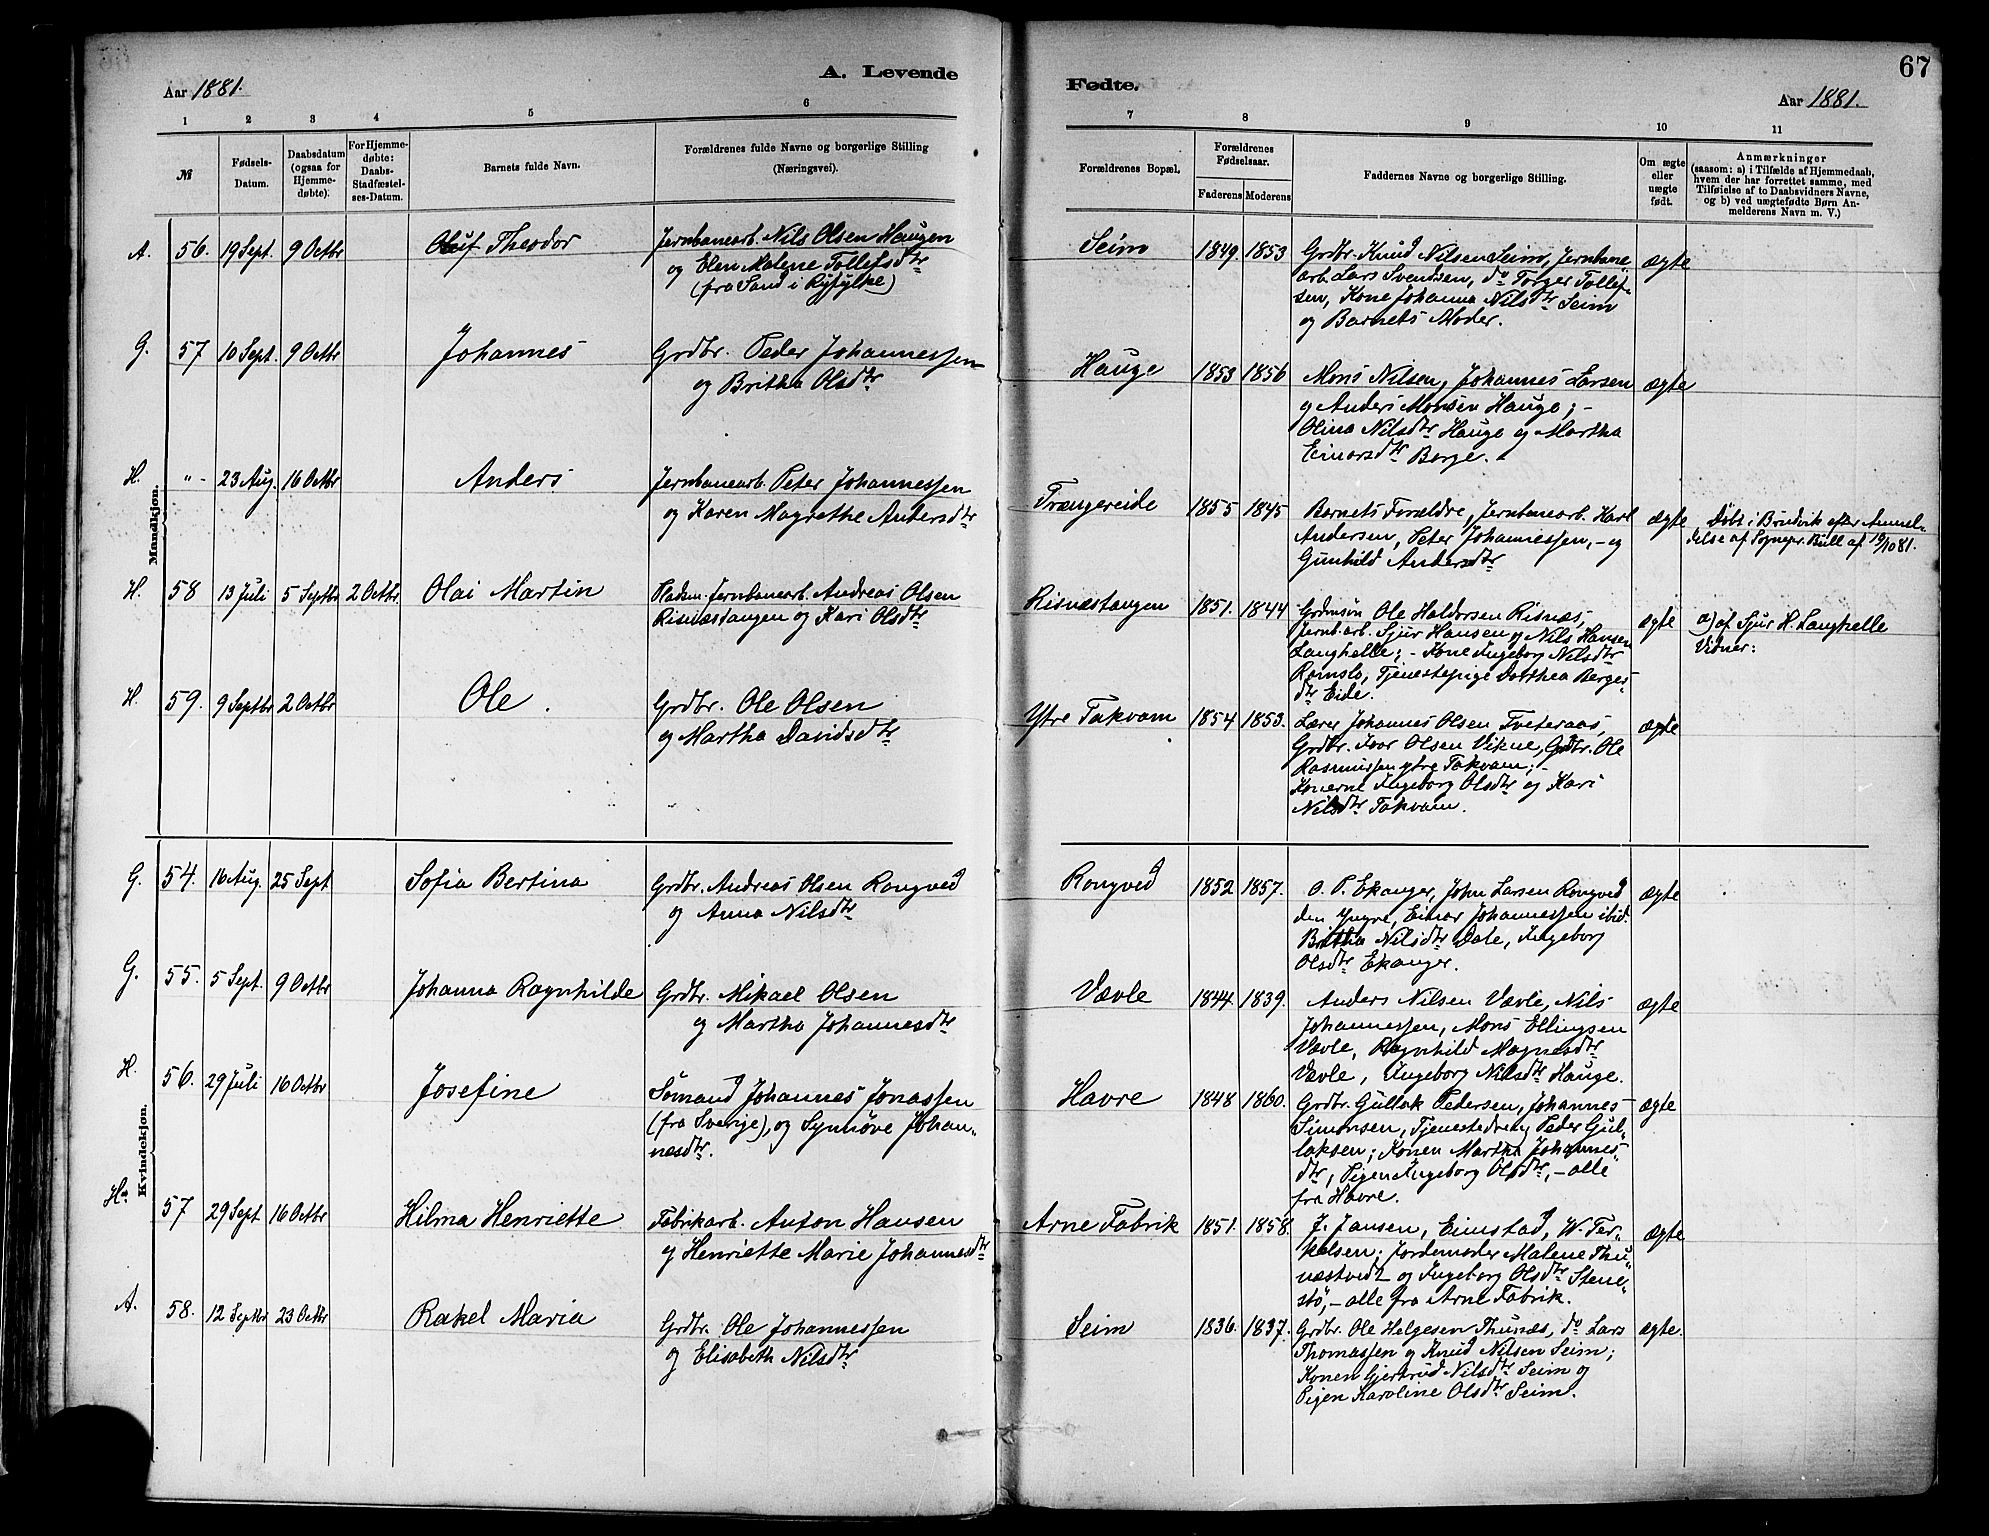 A. Levende
Fødte.
67
Aar 1881.
Aar 1881.
1
2
3
4
5
6
7
8
9
10
11
№
Fødsels-
Datum.
Daabsdatum
(ogsaa for
Hjemme-
døbte).
For Hjemme-
døbte:
Daabs-
Stadfæstel-
ses-Datum.
Barnets fulde Navn.
Forældrenes fulde Navne og borgerlige Stilling
(Næringsvei).
Forældrenes Bopæl.
Forældrenes
Fødselsaar.
Faderens
Moderens
Faddernes Navne og borgerlige Stilling.
Om ægte
eller
uægte
født.
Anmærkninger
(saasom: a) i Tilfælde af Hjemmedaab,
hvem der har forrettet samme, med
Tilføielse af to Daabsvidners Navne,
og b) ved uægtefødte Børn An-
melderens Navn m. V.)
Mandkjøn.
A. 56. 19 Sept. 9 Octbr Oluf Theodor
Jernbanearb. Nils Olsen Haugen
og Elen Malene Tollefsdtr
(fra Sand i Ryfylke)
Seim 1849 1853
Grdbr. Knud Nilsen Seim, Jernbane-
arb. Lars Svendsen, do Torger Tollef-
sen, Kone Johanna Nilsdtr Seim
og Barnets Moder.
ægte
G. 57 10 Sept. 9 Octbr Johannes
Grdbr. Peder Johannessen
og Britha Olsdtr
Hauge 1853 1856
Mons Nilsen, Johannes Larsen
og Anders Monsen Hauge; -
Olina Nilsdtr Hauge og Martha
Einarsdtr Borge.
ægte
H. "- 23 Aug. 16 Octbr Anders
Jernbanearb. Peter Johannessen
og Karen Magrethe Andersdtr
Trængereide 1855 1845
Barnets Forældre, Jernbanearb. Karl
Andersen, Peter Johannessen, - og
Gunhild Andersdtr
ægte
Døbt i Bruvik efter Anmel-
delse af Sognepr. Bull af 19/10 81.
H. 58 13 Juli 5 Septbr 2 Octbr. Olai Martin
Pladsm. Jernbanearb. Andreas Olsen
Risnæstangen og Kari Olsdtr
Risnæstangen 1851. 1844
Grdmsøn Ole Haldorsen Risnæs,
Jernb.arb. Sjur Hansen og Nils Hansen
Langhelle; - Kone Ingeborg Nilsdtr
Romslo, Tjenestepige Dorthea Berges-
dtr Eide.
ægte
a) af Sjur H. Langhelle
Vidner:
H. 59. 9 Septbr 2 Octbr Ole.
Grdbr. Ole Olsen
og Martha Davidsdtr
Ytre Takvam 1854 1853.
Lærer Johannes Olsen Tveteraas,
Grdbr. Ivar Olsen Vikne, Grdbr. Ole
Rasmussen ytre Takvam; -
Konerne Ingeborg Olsdtr og Kari
Nilsdtr Takvam.
ægte
Kvindekjøn.
G. 54. 16 Aug. 25 Sept Sofia Bertina
Grdbr. Andreas Olsen Rongved
og Anna Nilsdtr
Rongved 1852 1857.
O. P. Ekanger, John Larsen Rongved
den yngre, Einar Johannessen ibid.
Britha Nilsdtr Dale, Ingeborg
Olsdtr Ekanger.
ægte
G. 55. 5 Sept. 9 Octbr Johanna Ragnhilde
Grdbr. Mikael Olsen
og Martha Johannesdtr
Vævle 1844 1839.
Anders Nilsen Vævle, Nils
Johannessen, Mons Ellingsen
Vævle, Ragnhild Magnesdtr
Vævle, Ingeborg Nilsdtr Hauge.
ægte
H. 56. 29 Juli 16 Octbr Josefine
Sømand Johannes Jonassen
(fra Sverige), og Synnøve Johan-
nesdtr.
Havre 1848 1860.
Grdbr. Gullak Pedersen, Johannes
Simonsen, Tjenestedreng Peder Gul-
laksen; Konen Martha Johannes-
dtr, Pigen Ingeborg Olsdtr, - alle
fra Havre.
ægte
Hs 57 29 Sept 16 Octbr Hilma Henriette
Fabrikarb. Anton Hansen
og Henriette Marie Johannesdtr
Arne Fabrik 1851. 1858.
J. Jansen, Eimstad, W. Ter-
kelsen; Jordemoder Malene Thu-
næstvedt og Ingeborg Olsdtr Stene-
stø, - alle fra Arne Fabrik.
ægte
A. 58. 12 Septbr 23 Octbr Rakel Maria
Grdbr. Ole Johannessen
og Elisabeth Nilsdtr
Seim 1836. 1837.
Grdbr. Ole Helgesen Thunæs, do Lars
Thomassen og Knud Nilsen Seim;
Konen Gjertrud Nilsdtr Seim og
Pigen Karoline Olsdtr Seim.
ægte.